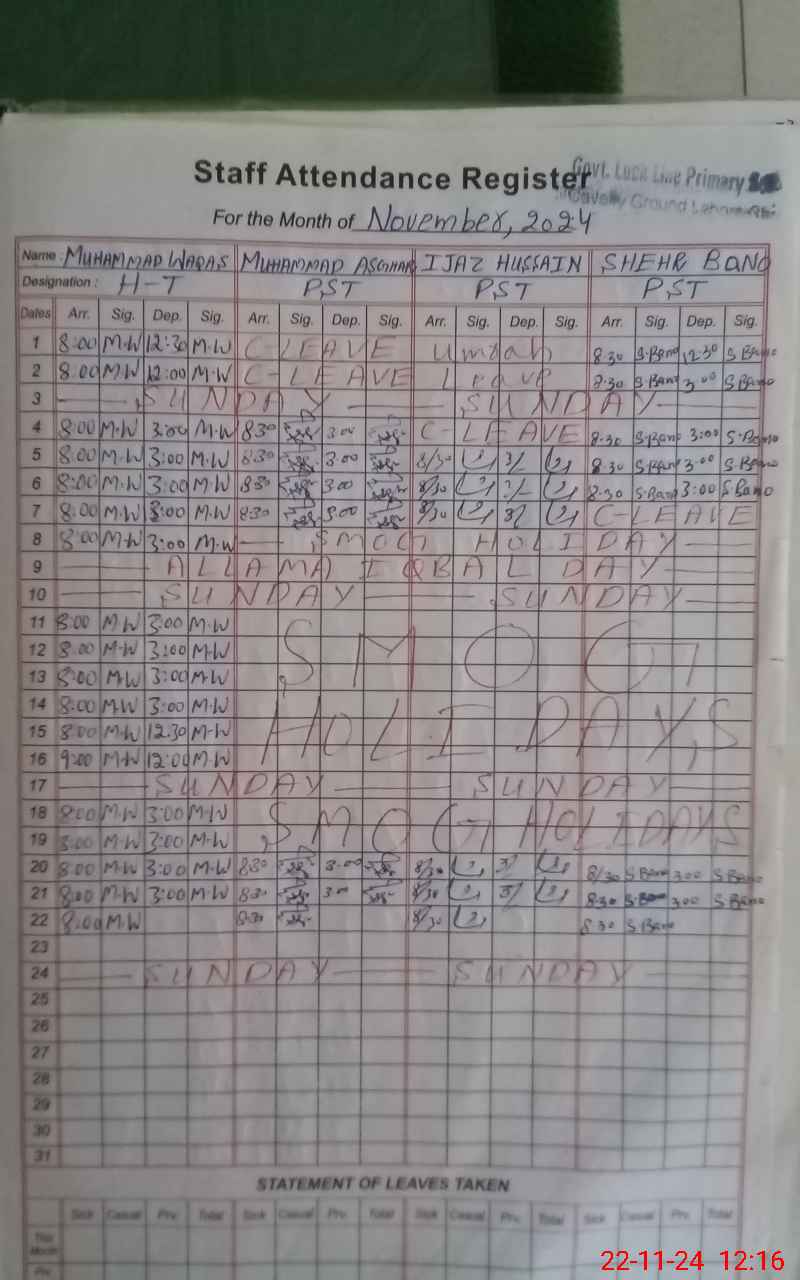 Staff Attendance Register
Govt. Primary
Ground
For the Month of November, 2024
Name : MUHAMMAD WAQAS MUHAMMAD ASGHAR IJAZ HUSSAIN SHEHR BANO
Designation : H-T PST PST PST
Dates Arr. Sig. Dep. Sig. Arr. Sig. Dep. Sig. Arr. Sig. Dep. Sig. Arr. Sig. Dep. Sig.
1 8:00 M.W 12:30 M.W C-LEAVE Umrah 8.30 S.Bano 12.30 S Bano
2 8:00 M.W 12:00 M.W C-LEAVE Leave 8.30 S.Bano 3.00 S Bano
3 SUNDAY SUNDAY
4 8:00 M.W 3:00 M.W 8:30 3:00 C-LEAVE 8.30 S.Bano 3:00 S.Bano
5 8:00 M.W 3:00 M.W 8:30 3:00 8/30 3/ 8.30 S.Bano 3.00 S.Bano
6 8:00 M.W 3:00 M.W 8:30 3:00 8/30 3/ 8.30 S.Bano 3:00 S.Bano
7 8:00 M.W 3:00 M.W 8:30 3:00 8/30 3/ C-LEAVE
8 8:00 M.W 3:00 M.W SMOG HOLIDAY
9 ALLAMA IQBAL DAY
10 SUNDAY SUNDAY
11 8:00 M.W 3:00 M.W
12 8:00 M.W 3:00 M.W SMOG
13 8:00 M.W 3:00 M.W
14 8:00 M.W 3:00 M.W
15 8:00 M.W 12.30 M.W HOLIDAYS
16 9:00 M.W 12:00 M.W
17 SUNDAY SUNDAY
18 8:00 M.W 3:00 M.W SMOG HOLIDAYS
19 8:00 M.W 3:00 M.W
20 8:00 M.W 3:00 M.W 8:30 3:00 8/30 3/ 8/30 S Bano 3.00 S Bano
21 8:00 M.W 3:00 M.W 8:30 3:00 8/30 3/ 8.30 S.Bano 3.00 S Bano
22 8:00 M.W 8:30 8/30 8 30 S Bano
23
24 SUNDAY SUNDAY
25
26
27
28
29
30
31
STATEMENT OF LEAVES TAKEN
Sick Casual Prv. Total Sick Casual Prv. Total Sick Casual Prv. Total Sick Casual Prv. Total
This Month
Prv.
22-11-24 12:16